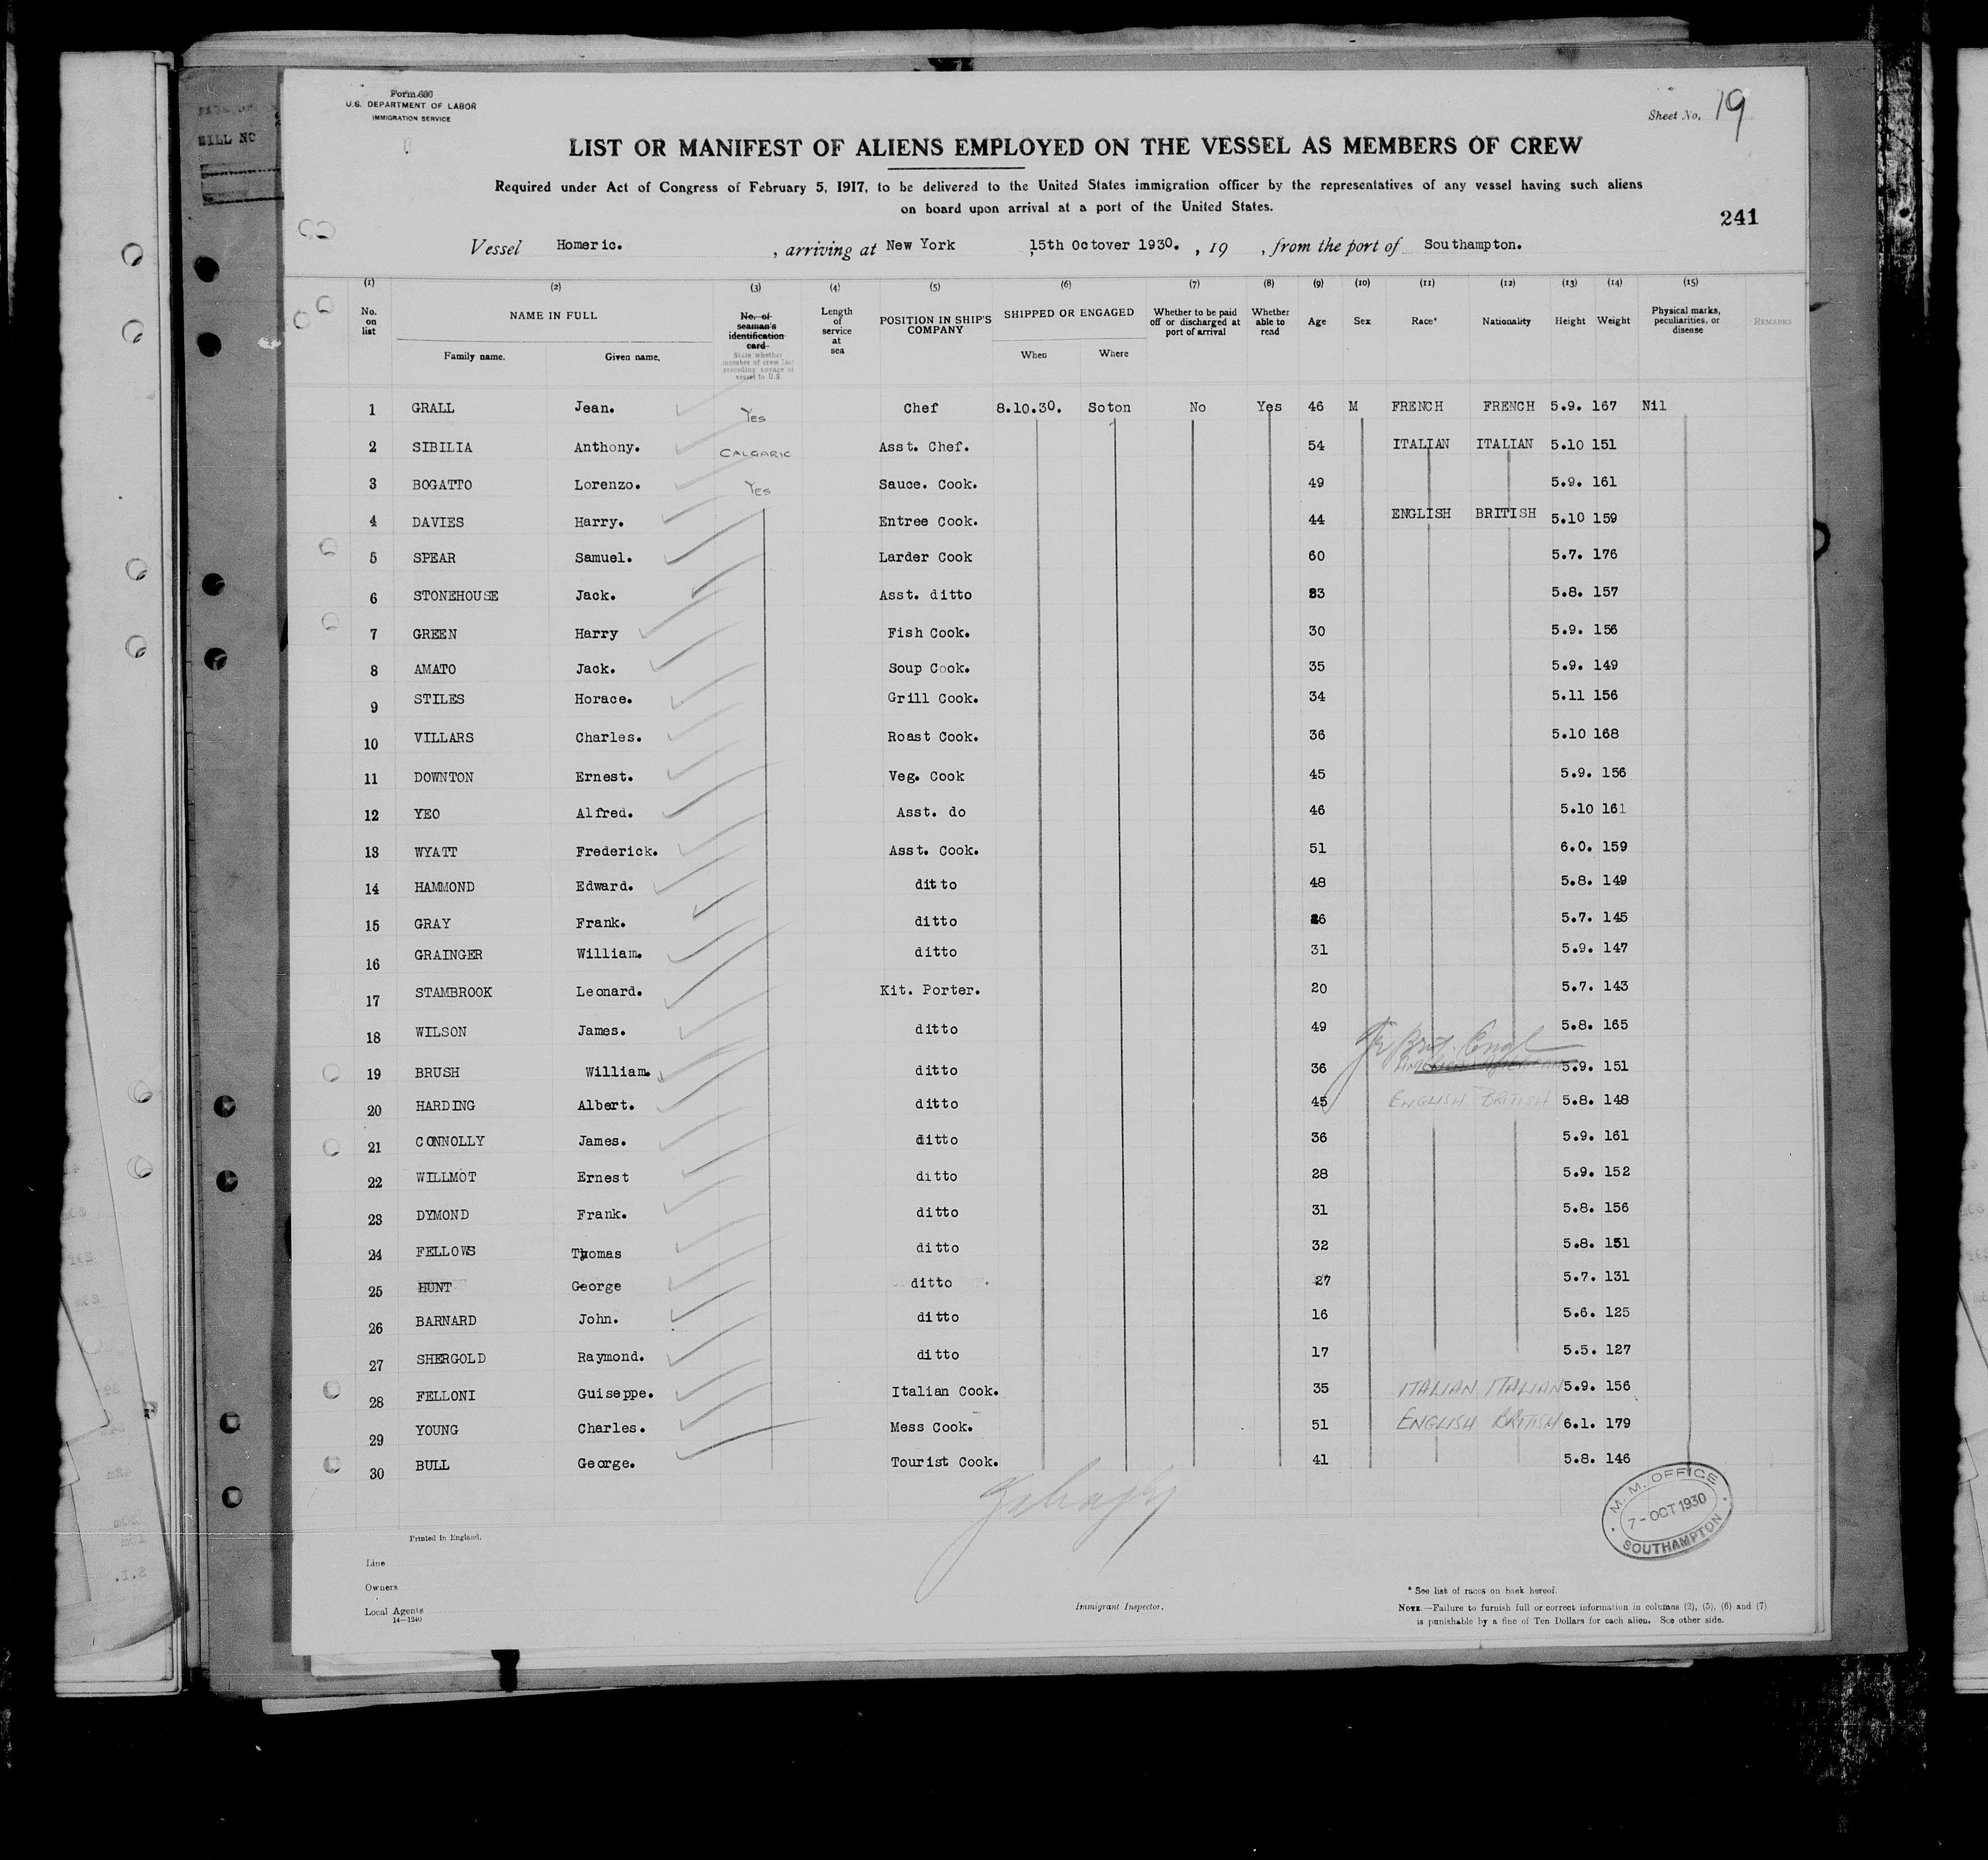 Form 680
U.S. DEPARTMENT OF LABOR
IMMIGRATION SERVICE
Sheet No. 19
LIST OR MANIFEST OF ALIENS EMPLOYED ON THE VESSEL AS MEMBERS OF CREW
Required under Act of Congress of February 5, 1917, to be delivered to the United States immigration officer by the representatives of any vessel having such aliens
on board upon arrival at a port of the United States.
241
Vessel Homeric. , arriving at New York , 15th Octover 1930. , 19 , from the port of Southampton.
(1) (2) (3) (4) (5) (6) (7) (8) (9) (10) (11) (12) (13) (14) (15)
No. on list NAME IN FULL Family name. Given name. No. of seaman's identification card State whether member of crew last preceding voyage of vessel to U.S. Length of service at sea POSITION IN SHIP'S COMPANY SHIPPED OR ENGAGED When Where Whether to be paid off or discharged at port of arrival Whether able to read Age Sex Race* Nationality Height Weight Physical marks, peculiarities, or disease REMARKS
1 GRALL Jean. Yes Chef 8.10.30. Soton No Yes 46 M FRENCH FRENCH 5.9. 167 Nil
2 SIBILIA Anthony. CALGARIC Asst. Chef. 54 ITALIAN ITALIAN 5.10 151
3 BOGATTO Lorenzo. Yes Sauce. Cook. 49 5.9. 161
4 DAVIES Harry. Entree Cook. 44 ENGLISH BRITISH 5.10 159
5 SPEAR Samuel. Larder Cook 60 5.7. 176
6 STONEHOUSE Jack. Asst. ditto 5.8. 157
7 GREEN Harry Fish Cook. 30 5.9. 156
8 AMATO Jack. Soup Cook. 35 5.9. 149
9 STILES Horace. Grill Cook. 34 5.11 156
10 VILLARS Charles. Roast Cook. 36 5.10 168
11 DOWNTON Ernest. Veg. Cook 45 5.9. 156
12 YEO Alfred. Asst. do 46 5.10 161
13 WYATT Frederick. Asst. Cook. 51 6.0. 159
14 HAMMOND Edward. ditto 48 5.8. 149
15 GRAY Frank. ditto 5.7. 145
16 GRAINGER William. ditto 31 5.9. 147
17 STAMBROOK Leonard. Kit. Porter. 20 5.7. 143
18 WILSON James. ditto 49 5.8. 165
Brit. Engl
19 BRUSH William. ditto 36 5.9. 151
20 HARDING Albert. ditto 45 ENGLISH BRITISH 5.8. 148
21 CONNOLLY James. ditto 36 5.9. 161
22 WILLMOT Ernest ditto 28 5.9. 152
23 DYMOND Frank. ditto 31 5.8. 156
24 FELLOWS Thomas ditto 32 5.8. 151
25 HUNT George ditto 27 5.7. 131
26 BARNARD John. ditto 16 5.6. 125
27 SHERGOLD Raymond. ditto 17 5.5. 127
28 FELLONI Guiseppe. Italian Cook. 35 ITALIAN ITALIAN 5.9. 156
29 YOUNG Charles. Mess Cook. 51 ENGLISH BRITISH 6.1. 179
30 BULL George. Tourist Cook. 41 5.8. 146
M. M. OFFICE
7 - OCT 1930
SOUTHAMPTON
Printed in England.
Line
Owners
Local Agents
14—1240
Immigrant Inspector.
* See list of races on back hereof.
NOTE.—Failure to furnish full or correct information in columns (2), (5), (6) and (7)
is punishable by a fine of Ten Dollars for each alien. See other side.